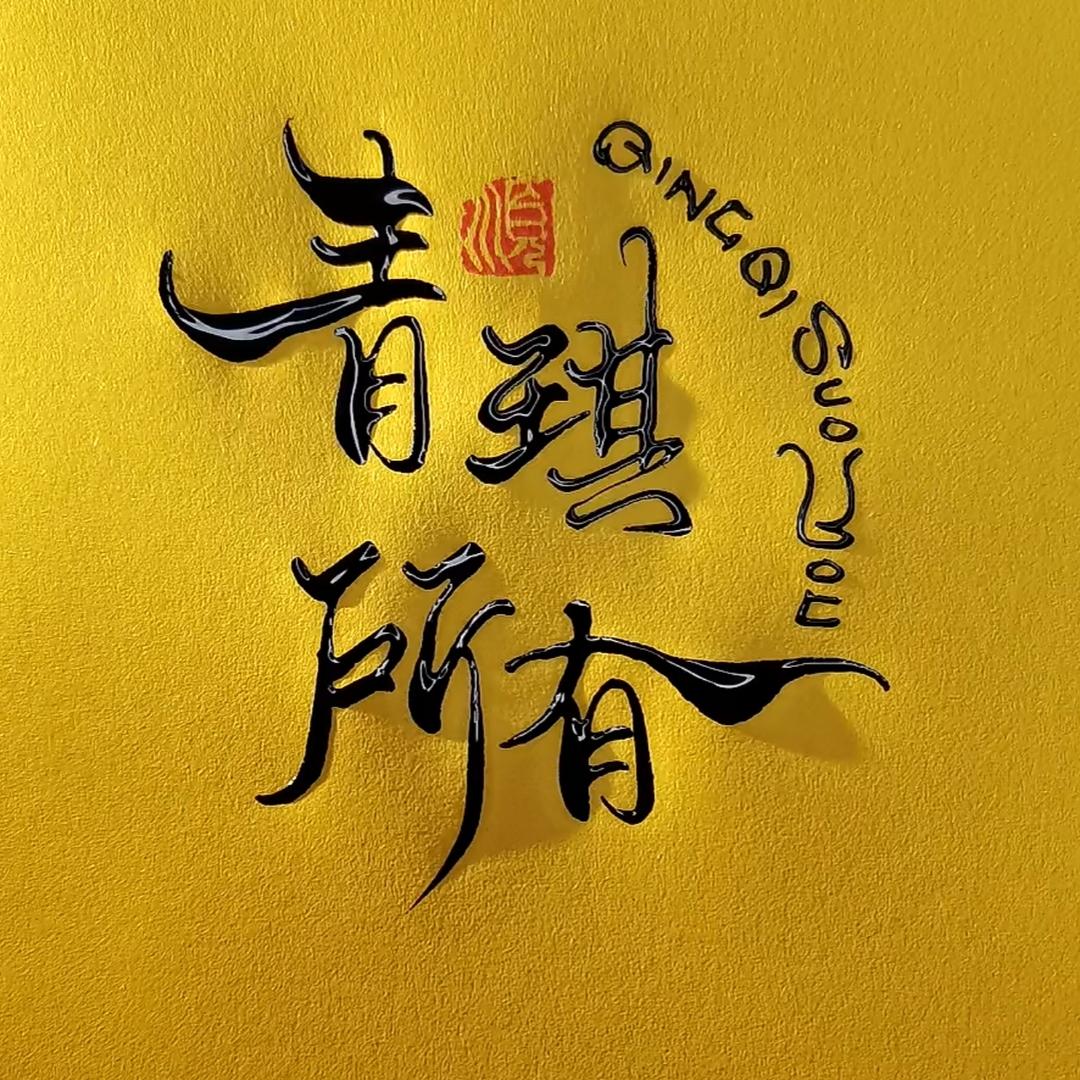 青琪
所有
順
QINGQI SUOYOE